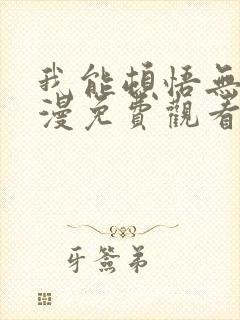 我能頓悟無
漫免費觀看
牙簽弟